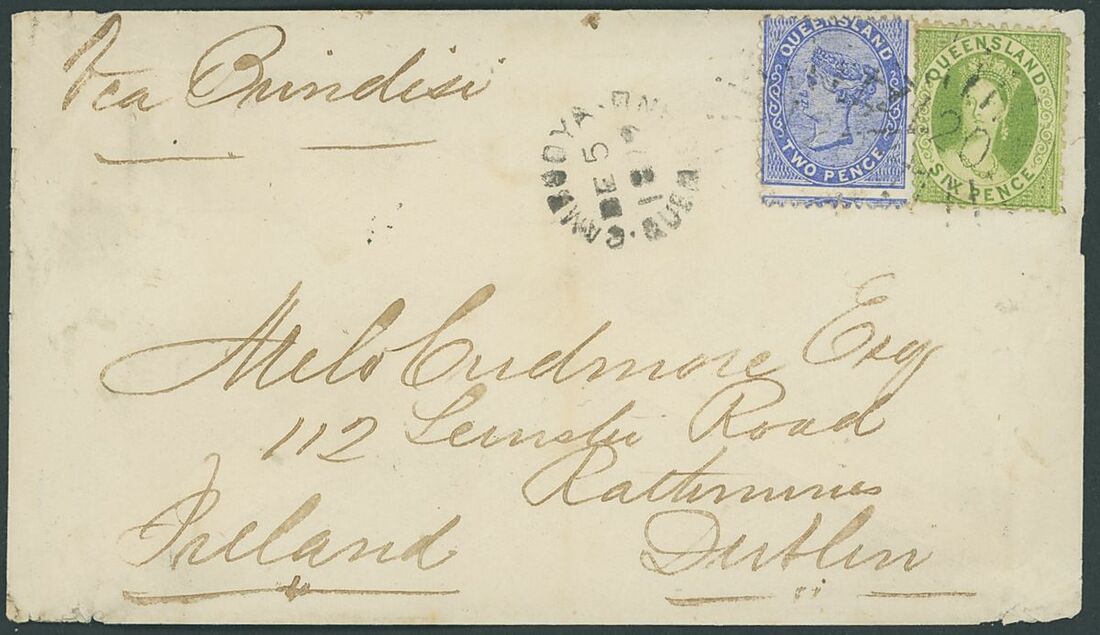 Via Brindisi
QUEENSLAND
TWO PENCE
QUEENSLAND
SIX PENCE
CAMBOOYA
DE 5
18
QUEEN
Cudmore Esq
112 Leinster Road
Rathmines
Ireland Dublin